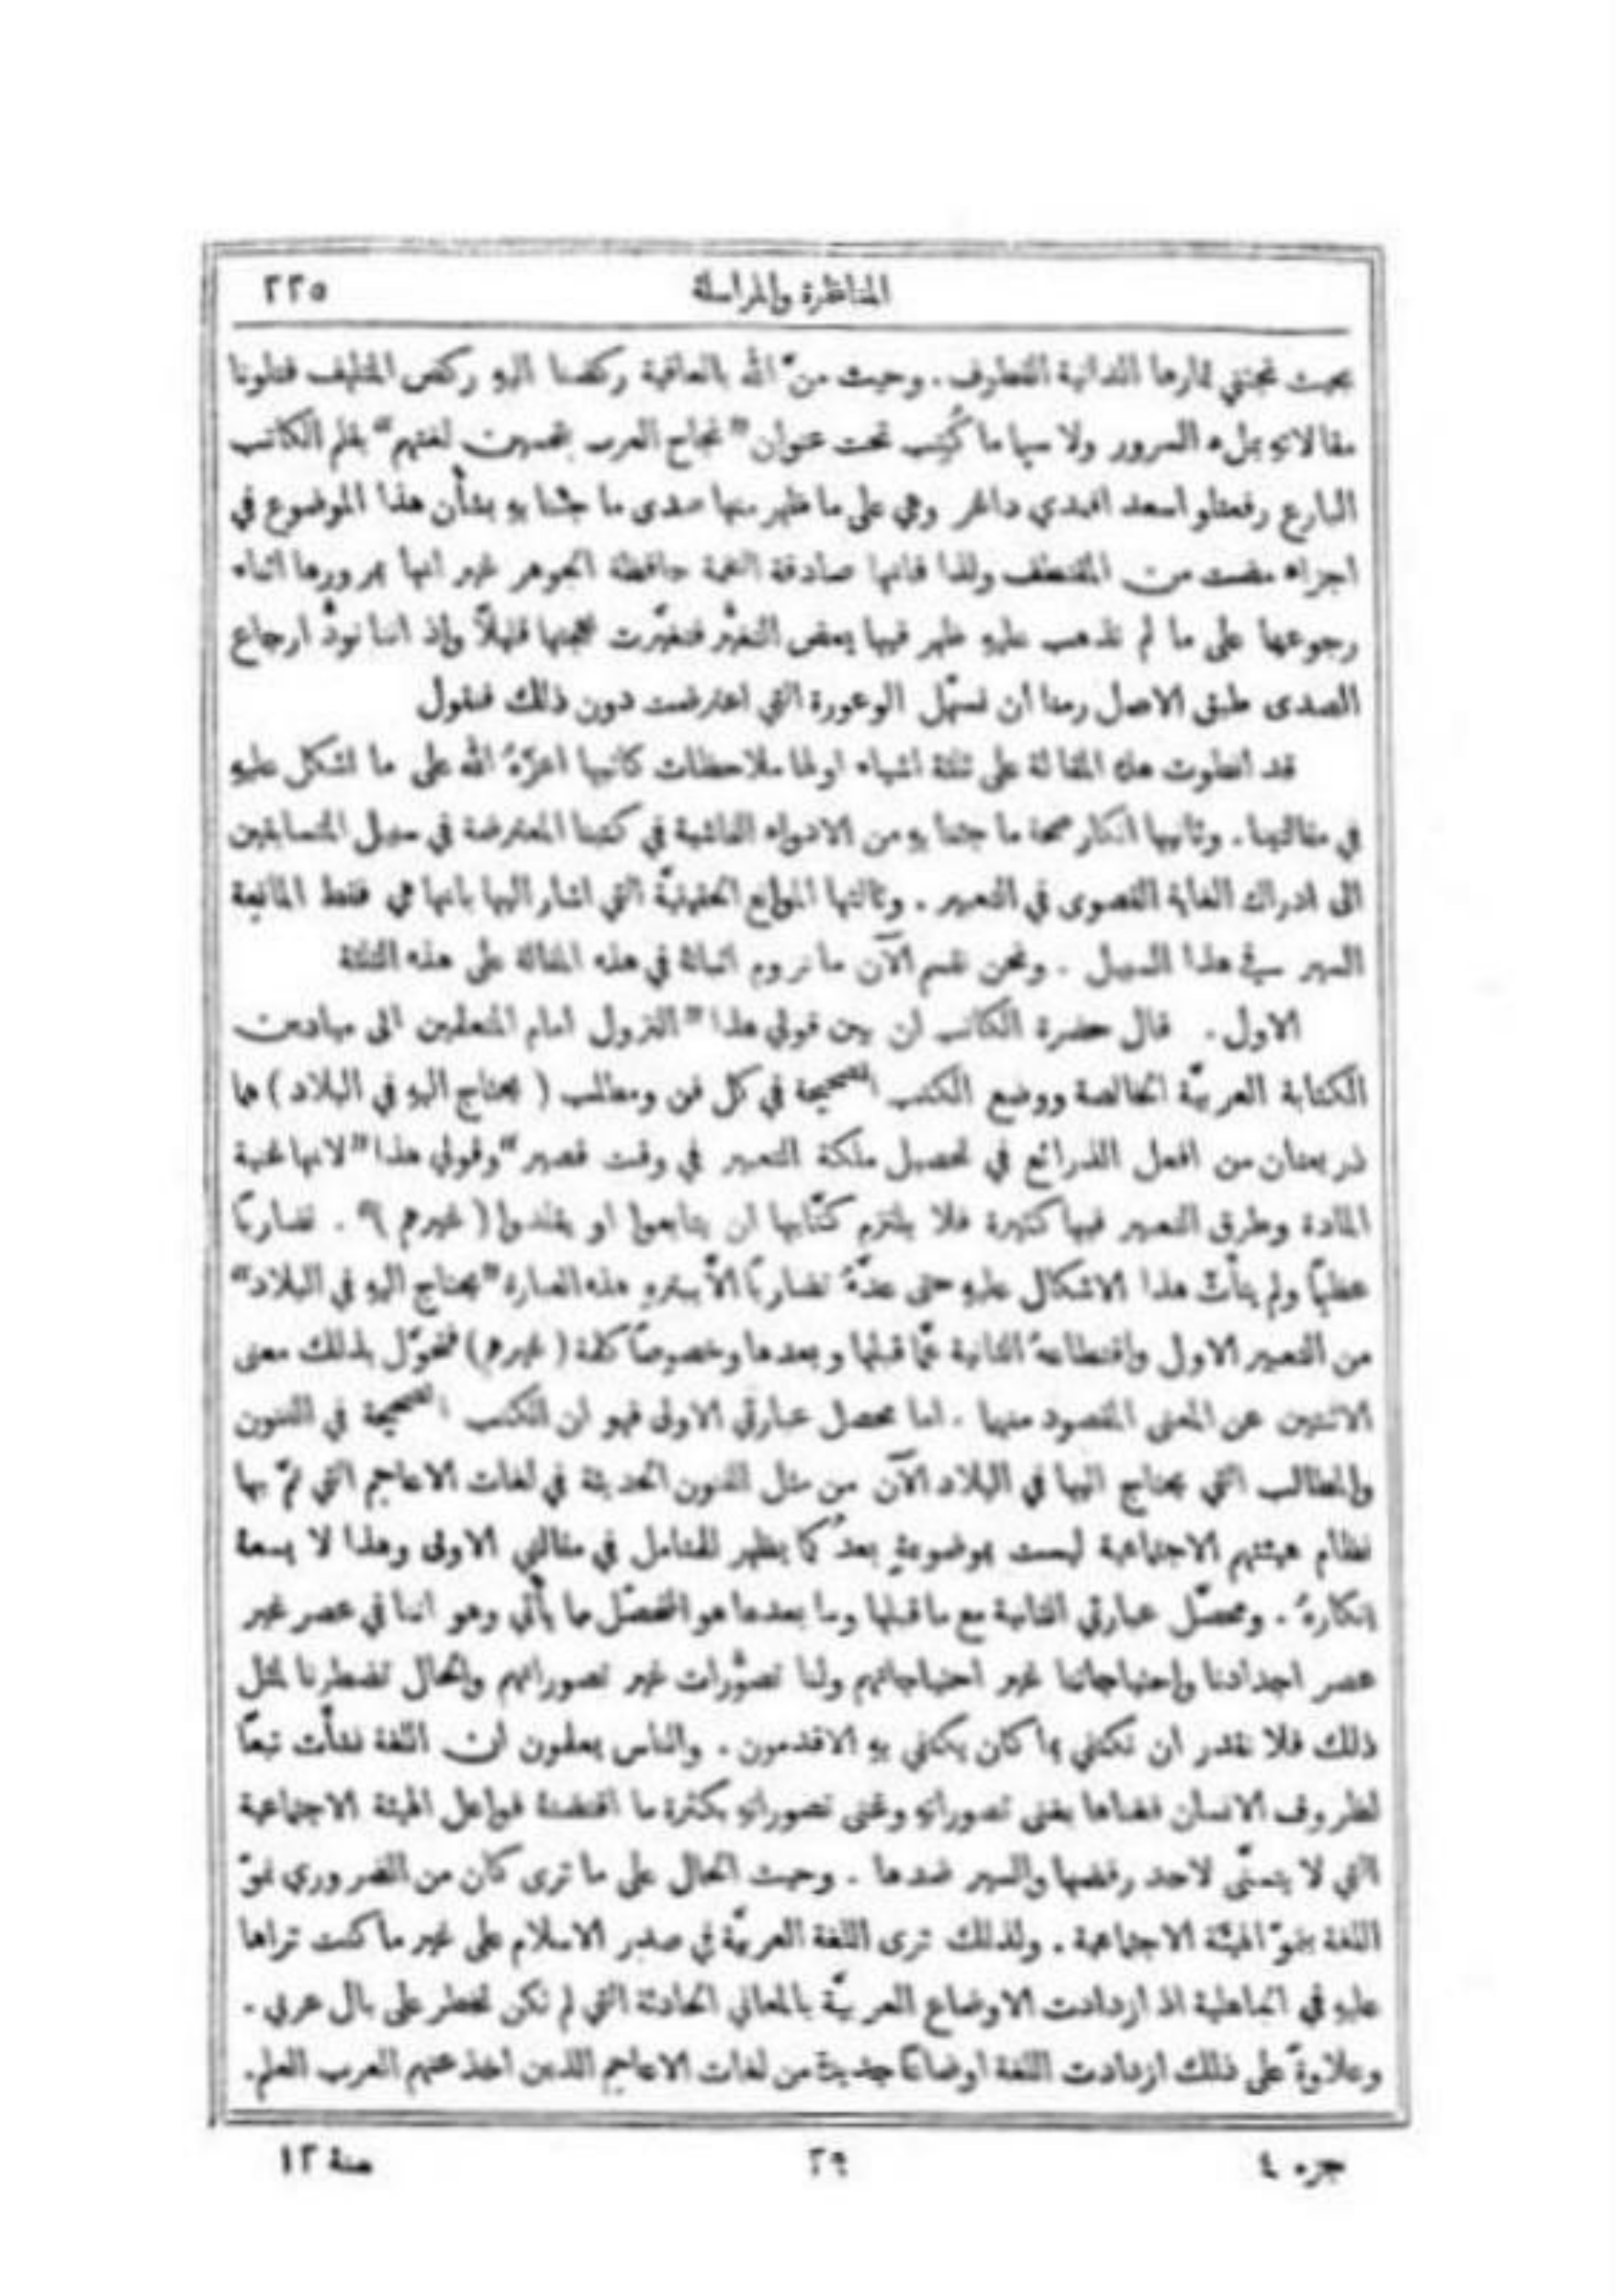 المناظرة والمراسلة ٢٢٥
بحيث نجتني ثمارها الدانية القطوف. وحيث منّ الله بالعافية ركضنا اليهِ ركض المتلهف فتلونا
مقالاتهِ بملء السرور ولا سيما ما كُتِب تحت عنوان "نجاح العرب بتحسين لغتهم" بقلم الكاتب
البارع رفعتلو اسعد افندي داغر وهي على ما ظهر منها صدى ما جئنا بهِ بشأن هذا الموضوع في
اجزاء مضت من المقتطف ولذا فانها صادقة النغمة حافظة الجوهر غير انها بمرورها اثناء
رجوعها على ما لم تذهب عليهِ ظهر فيها بعض التغيُّر فتغيّرت لهجتها قليلاً وإذ اننا نودُّ ارجاع
الصدى طبق الاصل رمنا ان نسهّل الوعورة التي اعترضت دون ذلك فنقول
قد انطوت هذه المقالة على ثلثة اشياء اولها ملاحظات كاتبها اعزّهُ الله على ما اشكل عليهِ
في مقالتينا. وثانيها انكار صحة ما جئنا بهِ من الادواء الفاشية في كتبنا المعترضة في سبيل المتسابقين
الى ادراك الغاية القصوى في التعبير. وثالثها الموانع الحقيقيّة التي اشار اليها بانها هي فقط المانعة
السير في هذا السبيل. ونحن نقسم الآن ما نروم اثباتهُ في هذه المقالة على هذه الثلثة
الاول. قال حضرة الكاتب ان بين قولي هذا "النزول امام المتعلمين الى ميادين
الكتابة العربيّة الخالصة ووضع الكتب الصحيحة في كل فن ومطلب (يحتاج اليهِ في البلاد) هما
ذريعتان من افعل الذرائع في تحصيل ملكة التعبير في وقت قصير" وقولي هذا "لانها غنية
المادة وطرق التعبير فيها كثيرة فلا يلتزم كتّابها ان يتابعوا او يقلدوا (غيرهم)". تضاربًا
عظيمًا ولم يتأتَّ هذا الاشكال عليهِ حتى عدّهُ تضاربًا الاَّ ببترهِ هذه العبارة "يحتاج اليهِ في البلاد"
من التعبير الاول واقتطاعهُ الثانية عمّا قبلها وبعدها وخصوصًا كلمة (غيرهم) فتحوّل بذلك معنى
الاثنتين عن المعنى المقصود منها. اما محصل عبارتي الاولى فهو ان الكتب الصحيحة في الفنون
والمطالب التي يحتاج اليها في البلاد الآن من مثل الفنون الحديثة في لغات الاعاجم التي تمّ بها
نظام هيئتهم الاجتماعية ليست بموضوعةٍ بعدُ كما يظهر للمتامل في مقالتي الاولى وهذا لا يسعهُ
إنكارهُ. ومحصّل عبارتي الثانية مع ما قبلها وما بعدها هو المفصّل بما يأتي وهو اننا في عصر غير
عصر اجدادنا واحتياجاتنا غير احتياجاتهم ولنا تصوُّرات غير تصوراتهم والحال تضطرنا لمثل
ذلك فلا نقدر ان نكتفي بما كان يكتفي بهِ الاقدمون. والناس يعلمون ان اللغة نشأت تبعًا
لظروف الانسان فغناها بغنى تصوراتهِ وغنى تصوراتهِ بكثرة ما اقتضتهُ فواعل الهيئة الاجتماعية
التي لا يتسنّى لاحد رفضها والسير ضدها. وحيث الحال على ما ترى كان من الضروري نموّ
اللغة بنموّ الهيئة الاجتماعية. ولذلك ترى اللغة العربيّة في صدر الاسلام على غير ما كنت تراها
عليهِ في الجاهلية اذ ازدادت الاوضاع العربيّة بالمعاني الحادثة التي لم تكن تخطر على بال عربي.
وعلاوةً على ذلك ازدادت اللغة اوضاعًا جديدة من لغات الاعاجم الذين اخذ عنهم العرب العلم.
جزء ٤ ٢٩ سنة ١٣